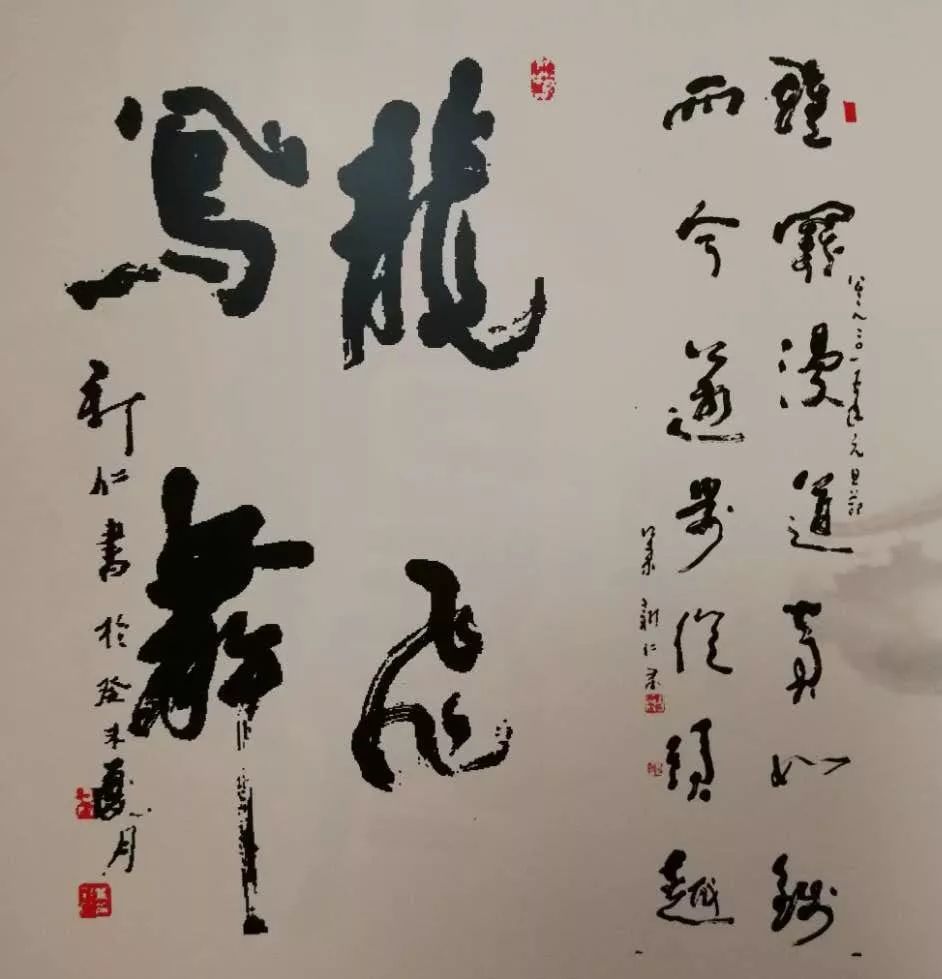 雄關漫道真如鐵
而今邁步從頭越
年元旦
新仁書
龍飛
鳳舞
新仁書於癸未夏月